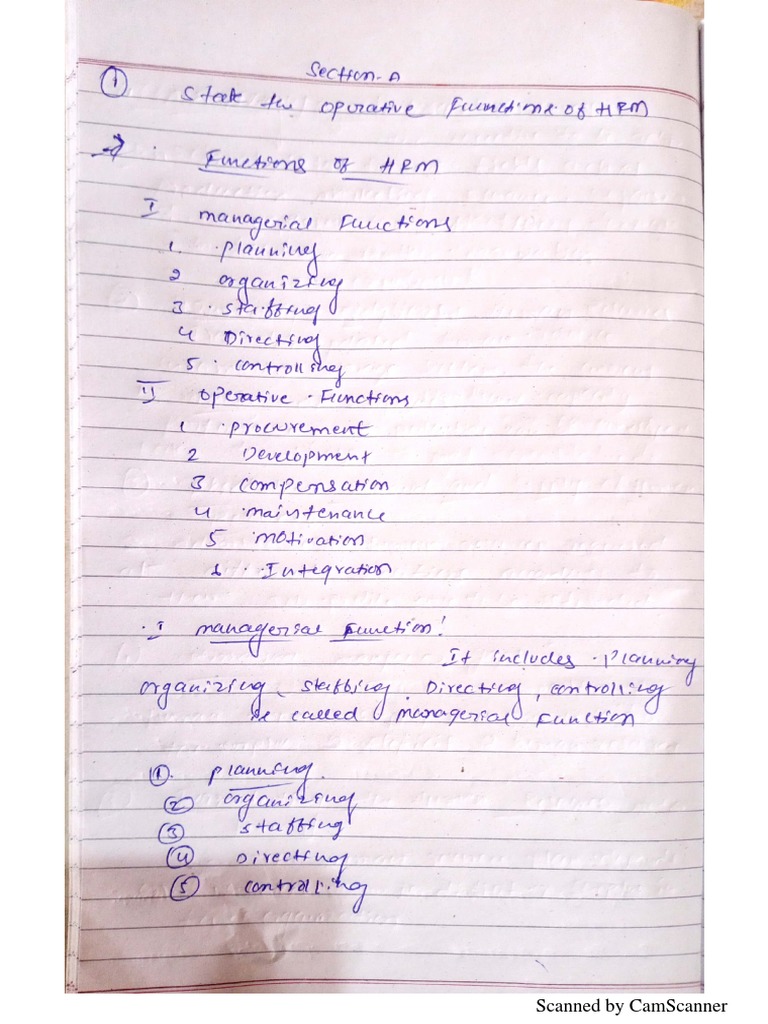 Section-A
① State the operative Functions of HRM
→ Functions of HRM
I managerial Functions
1. planning
2 organizing
3. staffing
4 Directing
5. controlling
II operative Functions
1 procurement
2 Development
3 compensation
4 maintenance
5 motivation
6 Integration
I managerial Function!
It includes planning
organizing, staffing, Directing, controlling
is called managerial Function
①. planning.
② organizing
③ staffing
④ Directing
⑤ controlling
Scanned by CamScanner